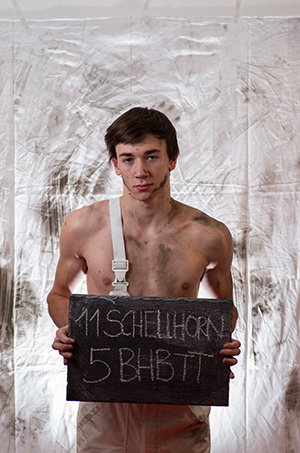 11 SCHELLHORN
5 BHBTT